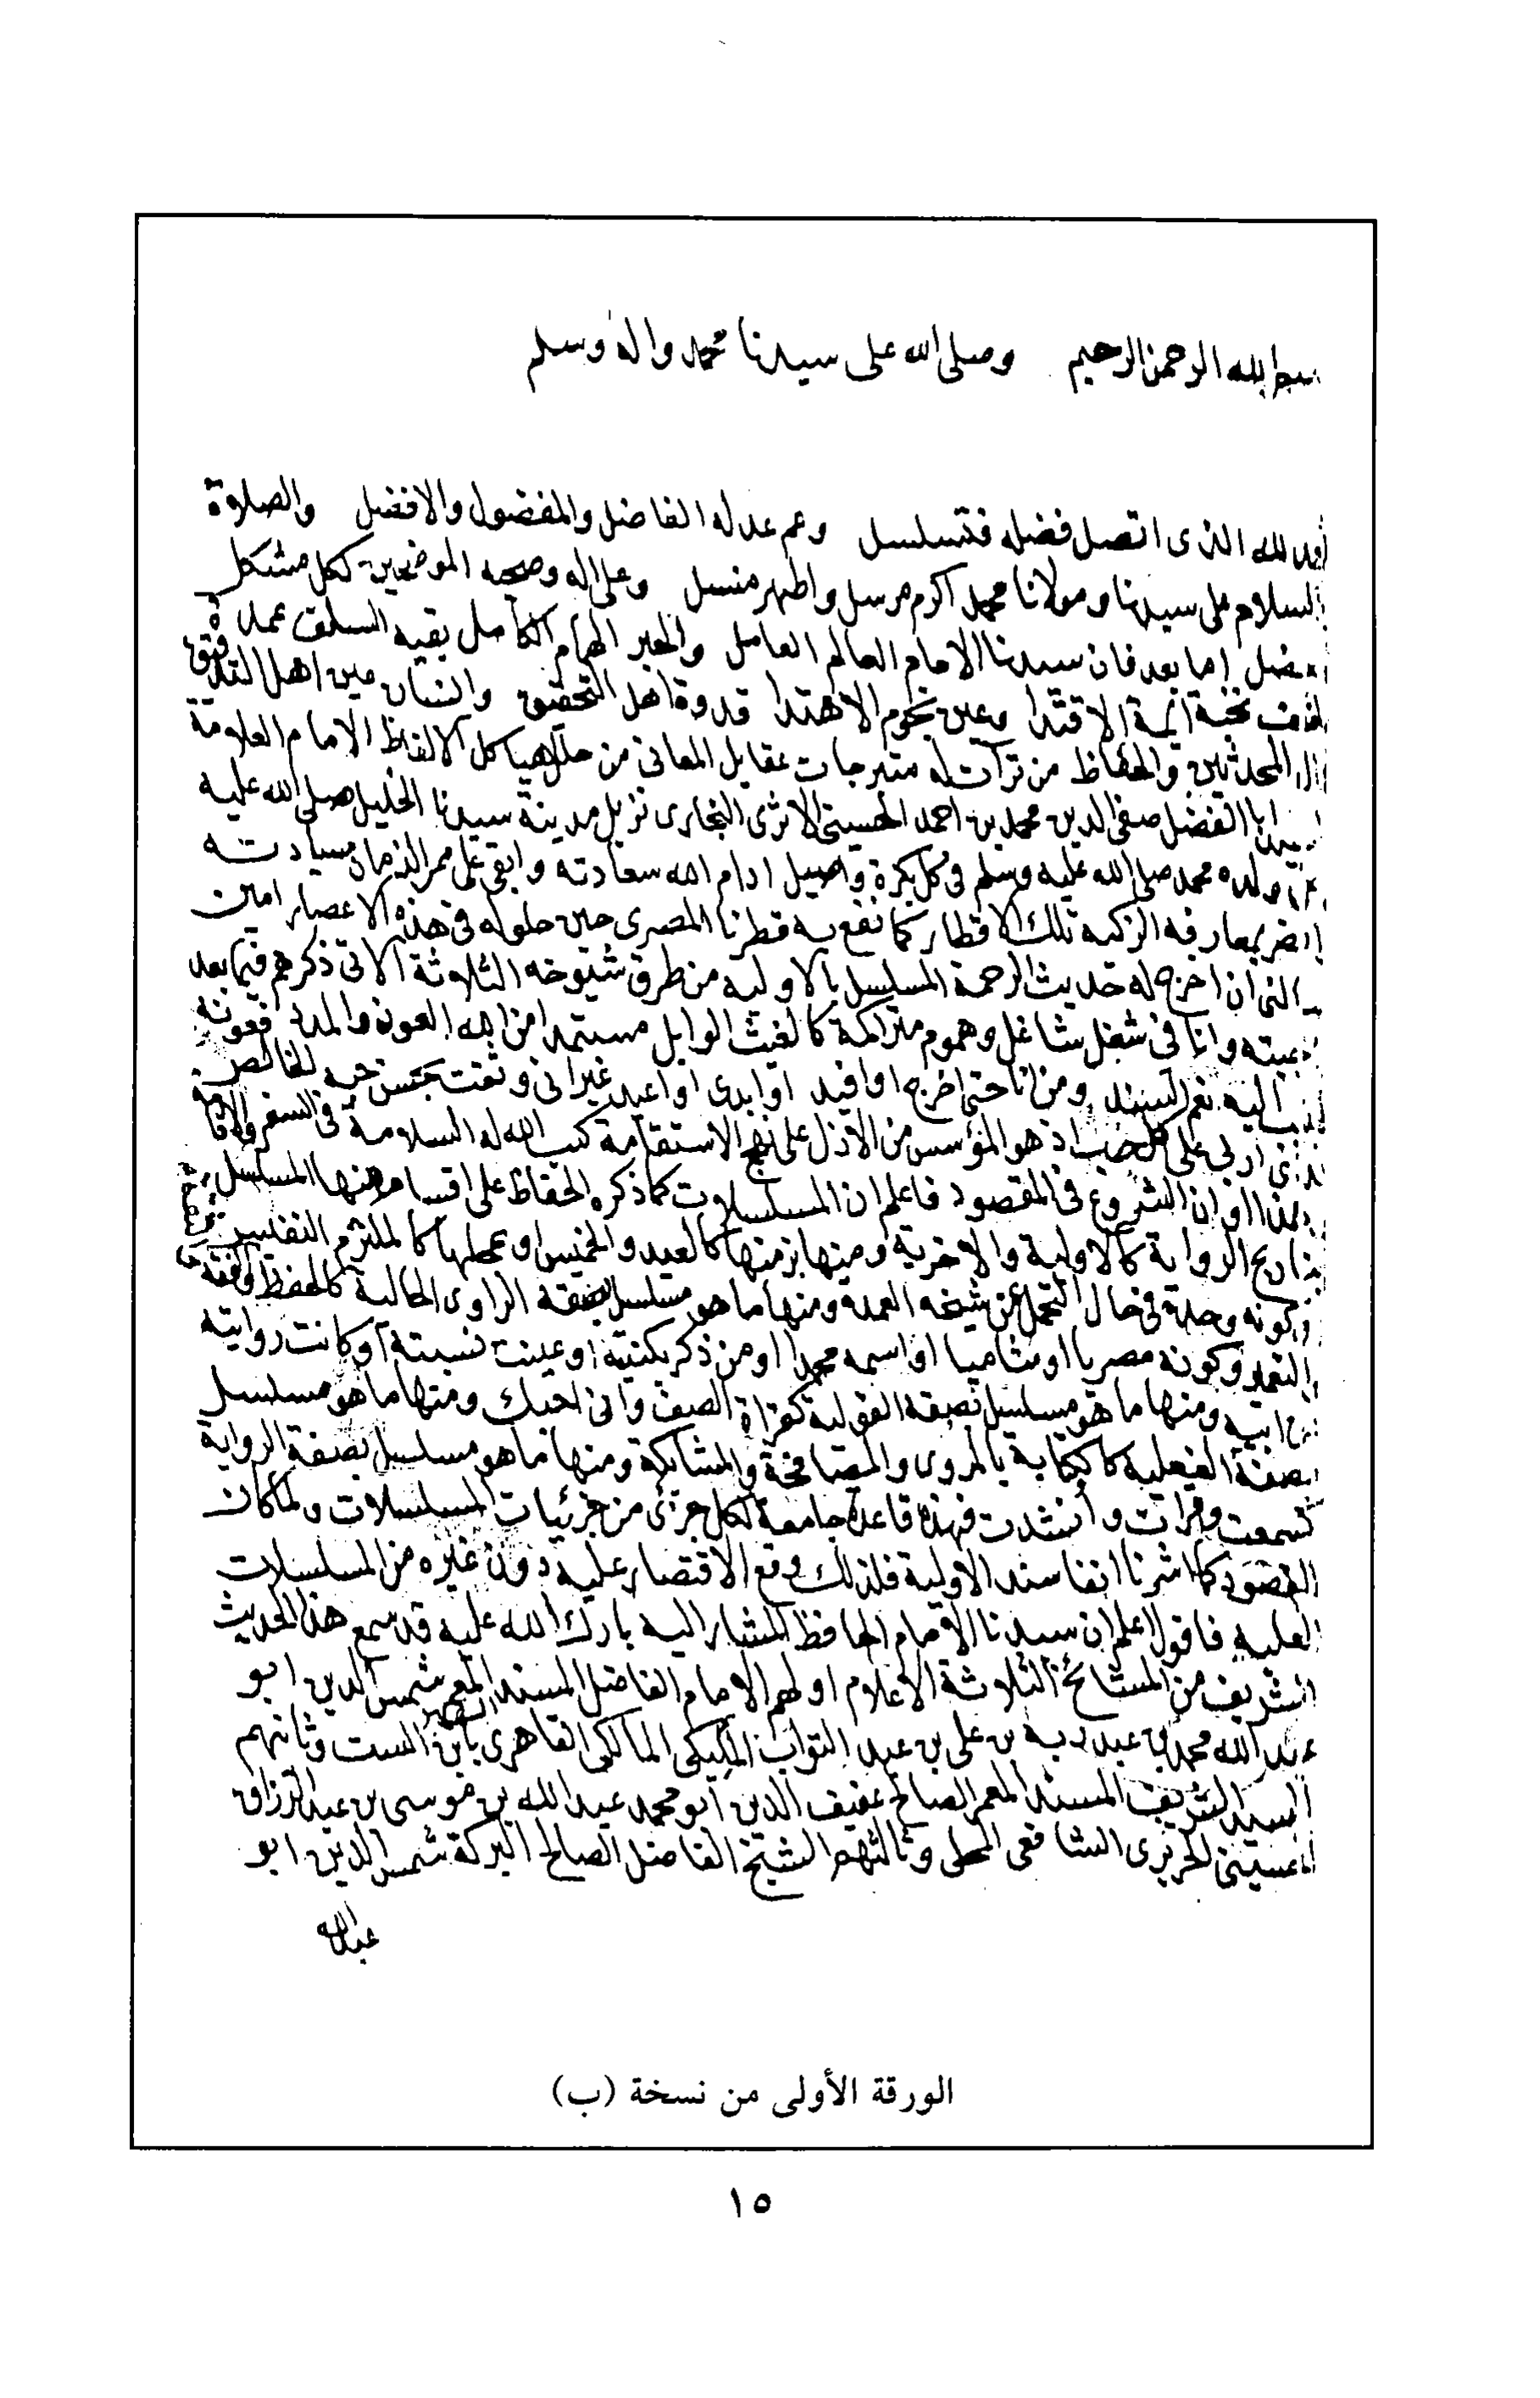 بسم الله الرحمن الرحيم وصلى الله على سيدنا محمد واله وسلم
الحمد لله الذى اتصل فضله فتسلسل وعم عدله الفاضل والمفضول والافضل والصلاة
والسلام على سيدنا ومولانا محمد اكرم مرسل واطهر منسل وعلى اله وصحبه الموضحين لكل مشكل
اما بعد فان سيدنا الامام العالم العامل والحبر الهمام الكامل بقيه السلف عمدة
نخبة ايمة الاقتدا وعين نجوم الاهتدا قدوة اهل التحقيق وانسان عين اهل التدقيق
المحدثين والحفاظ من ترآت له متبرجات عقايل المعانى من حلل هياكل الالفاظ الامام العلامة
ابا الفضل صفى الدين محمد بن احمد الحسينى الاثرى البخارى نزيل مدينة سيدنا الخليل صلى الله عليه
ولده محمد صلى الله عليه وسلم فى كل بكرة واصيل ادام الله سعادته وابقى على ممر الزمان سيادته
بمعارفه الزكيه تلك الاقطار كما نفع به قطرنا المصرى حين حلوله فى هذه الاعصار امين
ان اخرج له حديث الرحمة المسلسل بالاوليه من طرق شيوخه الثلاثة الاتى ذكرهم فيما بعد
وانا فى شغل شاغل وهموم متراكمة كالغيث الوابل مستمدا من الله العون والمدد فعونه
اليه نعم السند ومن انا حتى اخرج او افيد او ابدى او اعيد غير انى وثقت بحسن حبه الخالص
اربى على كل حب اذ هو المؤسس من الازل على نهج الاستقامة كتب الله له السلامة فى السفر والاقامة
اوان الشروع فى المقصود فاعلم ان المسلسلات كما ذكره الحفاظ على اقسام منها المسلسل
بتاريخ الرواية كالاولية والاخرية ومنها بزمنها كالعيد والخميس او بمحلها كالملتزم
وكونه وحده فى حال التحمل عن شيخه العمدة ومنها ما هو مسلسل بصفة الراوى الحالية كالحفظ والفقه
وكونه مصريا او شاميا او اسمه محمدا او من ذكر بكنيته او عينت نسبته او كانت روايته
ومنها ما هو مسلسل بصفة القولية كقراة الصف وانى احبك ومنها ما هو مسلسل
بصفة الفعلية كالكتابة بالمروى والمصافحة والمشابكة ومنها ما هو مسلسل بصفة الرواية
كسمعت وقرات وانشدت فهذه قاعدة جامعة لكل جزئ من جزئيات المسلسلات ولما كان
المقصود كما اشرنا انفا سند الاولية فلذلك وقع الاقتصار عليه دون غيره من المسلسلات
العليه فاقول اعلم ان سيدنا الامام الحافظ المشار اليه بارك الله عليه قد سمع هذا الحديث
الشريف من المشائخ الثلاثة الاعلام اولهم الامام الفاضل المسند المعمر شمس الدين ابو
عبد الله محمد بن عبد ربه بن على بن عبد التواب المليكى المالكى القاهرى بابن الست وثانيهم
السيد الشريف المسند المعمر الصالح عفيف الدين ابو محمد عبد الله بن موسى بن عبد الرزاق
الحسينى الحريرى الشافعى المحلى وثالثهم الشيخ الفاضل الصالح البركة شمس الدين ابو
عبد الله
الورقة الأولى من نسخة (ب)
١٥